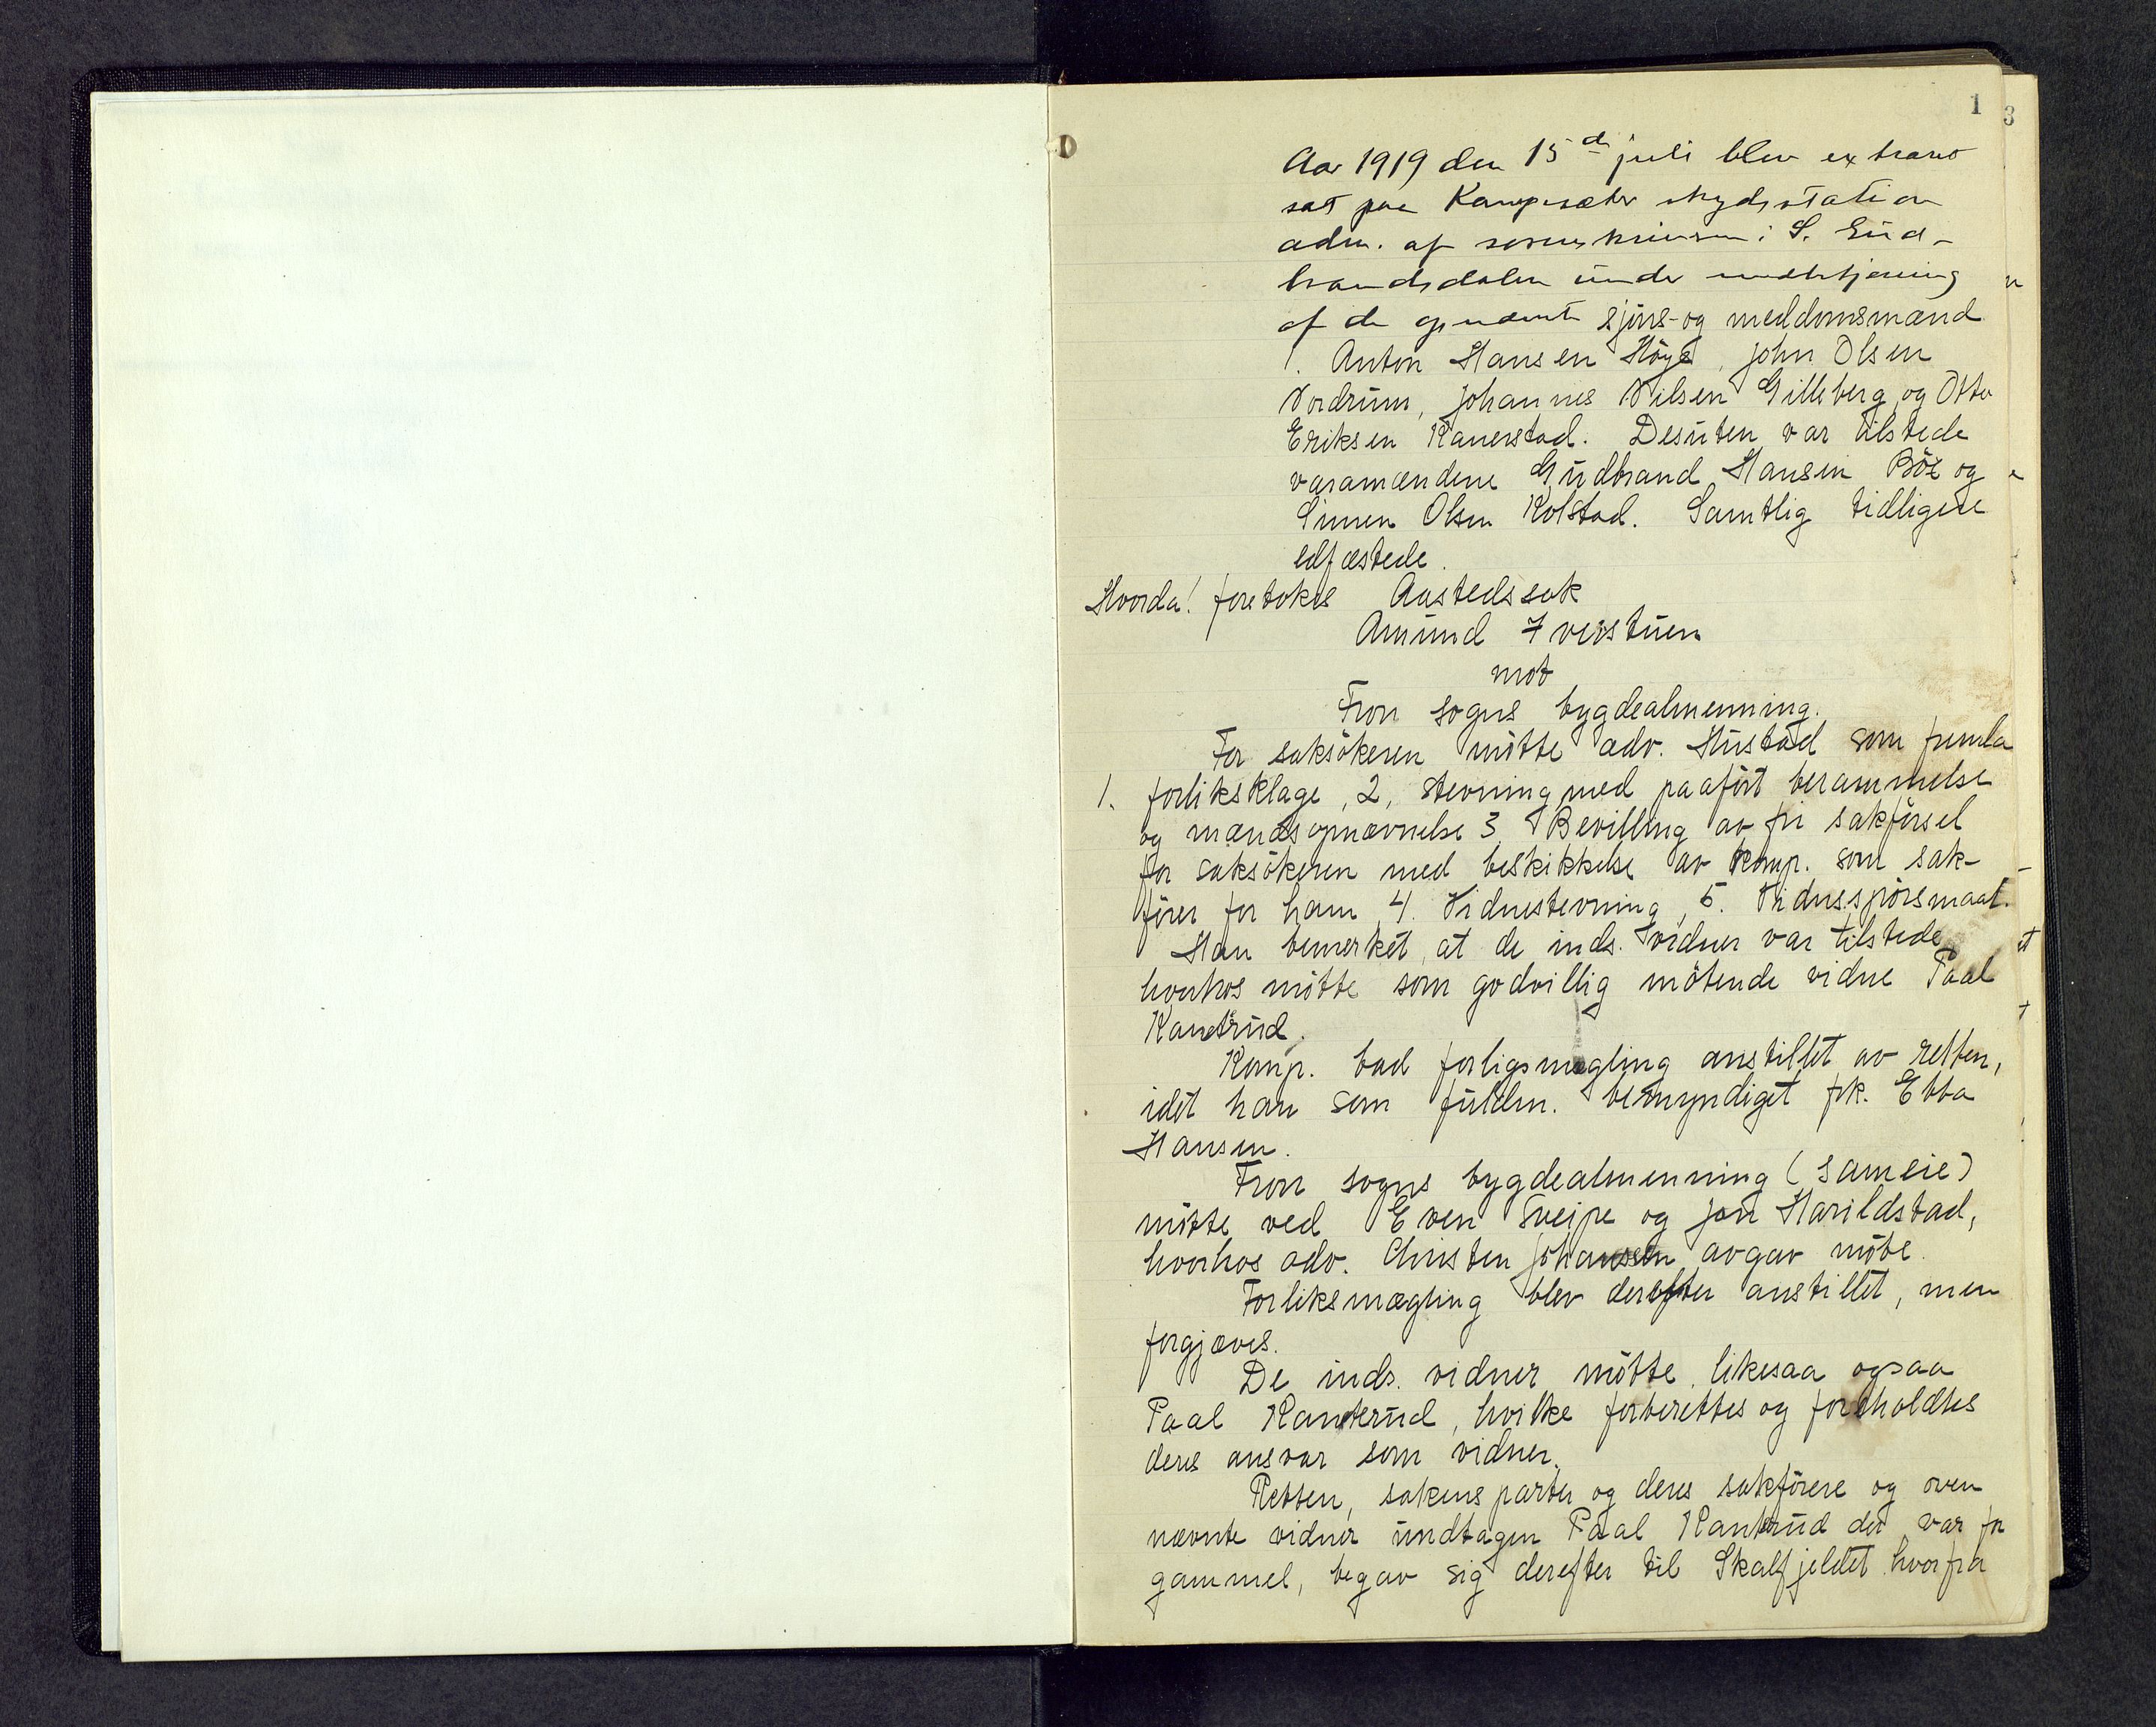 1
3
Aar 1919 den 15de juli blev extraret
sat paa Kampesæter skydsstation
adm. af sorenskriveren i S. Gud-
brandsdalen under medbetjening
af de opnævnte sjöns- og meddomsmænd
1. Anton Hansen Höye, John Olsen
Nordrum, Johannes Nilsen Gilleberg og Otto
Eriksen Kanerstad. Desuten var tilstede
varamændene Gudbrand Hansen Böe og
Simen Olsen Kolstad. Samtlig tidligere
edfæstede.
Hvorda! foretokes Aastedssak
Amund Iverstuen
mot
Fron sogns bygdealmenning.
For saksökeren mötte adv. Hustad som fremla
1. forliksklage, 2, stevning med paafört berammelse
og mændsopnævnelse 3. Bevilling av fri sakförsel
for saksökeren med beskikkelse av komp. som sak-
förer for ham, 4. Vidnestevning, 5. Vidnespörsmaal.
Han bemerket, at de inds. vidner var tilstede
hvorhos mötte som godvillig mötende vidne Paal
Kanterud.
Komp. bad forligsmegling anstillet av retten,
idet han som fuldm. bemyndiget frk. Ebba
Hansen.
Fron sogns bygdealmenning (sameie)
mötte ved Even Sveipe og Jon Harildstad,
hvorhos adv. Christen Johanssen avgav möte.
Forliksmægling blev derefter anstillet, men
forgjæves.
De inds. vidner mötte, likesaa ogsaa
Paal Kanterud, hvilke forberettes og foreholdtes
deres ansvar som vidner.
Retten, sakens parter og deres sakförere og oven
nævnte vidner undtagen Paal Kanterud der var for
gammel, begav sig derefter til Skalfjeldet hvorfra